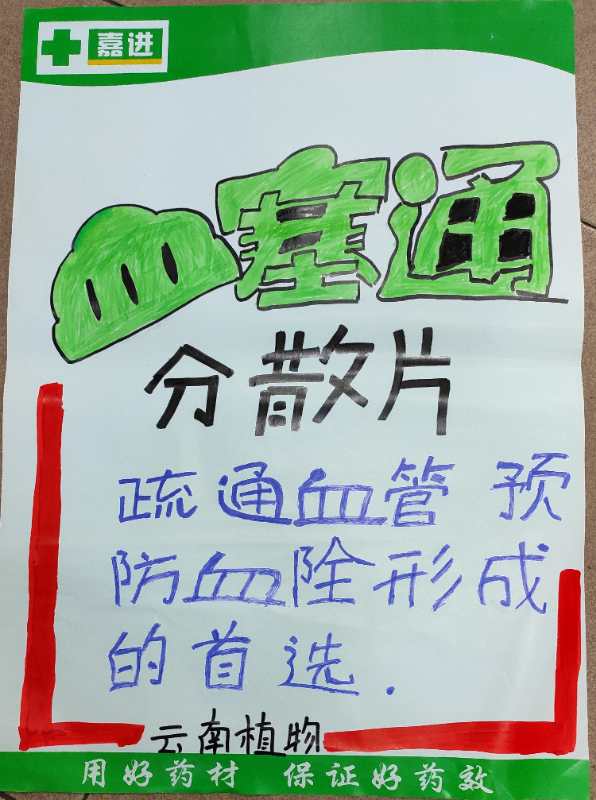 嘉进
血塞通
分散片
疏通血管 预
防血险形成
的首选.
云南植物
用好药材 保证好药效